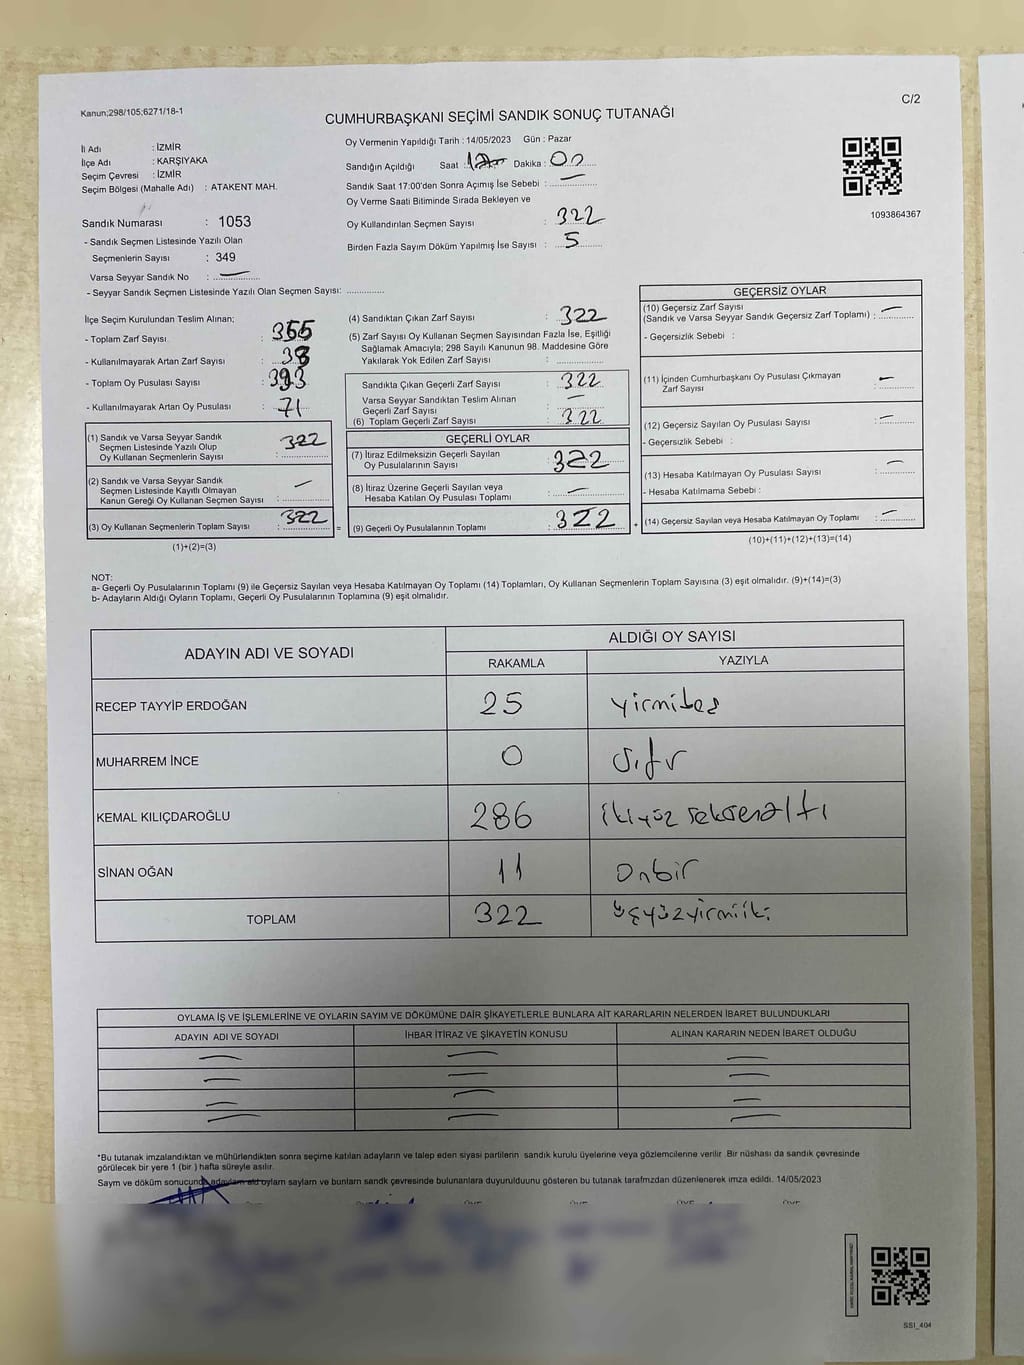 Kanun;298/105;6271/18-1
C/2
CUMHURBAŞKANI SEÇİMİ SANDIK SONUÇ TUTANAĞI
İl Adı : İZMİR
İlçe Adı : KARŞIYAKA
Seçim Çevresi : İZMİR
Seçim Bölgesi (Mahalle Adı) : ATAKENT MAH.
Sandık Numarası : 1053
- Sandık Seçmen Listesinde Yazılı Olan
Seçmenlerin Sayısı : 349
Varsa Seyyar Sandık No : —
- Seyyar Sandık Seçmen Listesinde Yazılı Olan Seçmen Sayısı: ..............
Oy Vermenin Yapıldığı Tarih : 14/05/2023 Gün : Pazar
Sandığın Açıldığı Saat : Dakika : 00
Sandık Saat 17:00'den Sonra Açımış İse Sebebi : —
Oy Verme Saati Bitiminde Sırada Bekleyen ve
Oy Kullandırılan Seçmen Sayısı : 322
Birden Fazla Sayım Döküm Yapılmış İse Sayısı : 5
1093864367
İlçe Seçim Kurulundan Teslim Alınan;
- Toplam Zarf Sayısı :
- Kullanılmayarak Artan Zarf Sayısı : 38
- Toplam Oy Pusulası Sayısı : 393
- Kullanılmayarak Artan Oy Pusulası : 71
(1) Sandık ve Varsa Seyyar Sandık
Seçmen Listesinde Yazılı Olup
Oy Kullanan Seçmenlerin Sayısı : 322
(2) Sandık ve Varsa Seyyar Sandık
Seçmen Listesinde Kayıtlı Olmayan
Kanun Gereği Oy Kullanan Seçmen Sayısı : —
(3) Oy Kullanan Seçmenlerin Toplam Sayısı : 322 =
(1)+(2)=(3)
(4) Sandıktan Çıkan Zarf Sayısı : 322
(5) Zarf Sayısı Oy Kullanan Seçmen Sayısından Fazla İse, Eşitliği
Sağlamak Amacıyla; 298 Sayılı Kanunun 98. Maddesine Göre
Yakılarak Yok Edilen Zarf Sayısı : ..............
Sandıkta Çıkan Geçerli Zarf Sayısı : 322
Varsa Seyyar Sandıktan Teslim Alınan
Geçerli Zarf Sayısı : —
(6) Toplam Geçerli Zarf Sayısı : 322
GEÇERLİ OYLAR
(7) İtiraz Edilmeksizin Geçerli Sayılan
Oy Pusulalarının Sayısı : 322
(8) İtiraz Üzerine Geçerli Sayılan veya
Hesaba Katılan Oy Pusulası Toplamı : —
(9) Geçerli Oy Pusulalarının Toplamı : 322 +
GEÇERSİZ OYLAR
(10) Geçersiz Zarf Sayısı
(Sandık ve Varsa Seyyar Sandık Geçersiz Zarf Toplamı) : —
- Geçersizlik Sebebi :
(11) İçinden Cumhurbaşkanı Oy Pusulası Çıkmayan
Zarf Sayısı : —
(12) Geçersiz Sayılan Oy Pusulası Sayısı : —
- Geçersizlik Sebebi :
(13) Hesaba Katılmayan Oy Pusulası Sayısı : —
- Hesaba Katılmama Sebebi :
(14) Geçersiz Sayılan veya Hesaba Katılmayan Oy Toplamı : —
(10)+(11)+(12)+(13)=(14)
NOT:
a- Geçerli Oy Pusulalarının Toplamı (9) ile Geçersiz Sayılan veya Hesaba Katılmayan Oy Toplamı (14) Toplamları, Oy Kullanan Seçmenlerin Toplam Sayısına (3) eşit olmalıdır. (9)+(14)=(3)
b- Adayların Aldığı Oyların Toplamı, Geçerli Oy Pusulalarının Toplamına (9) eşit olmalıdır.
ADAYIN ADI VE SOYADI ALDIĞI OY SAYISI
RAKAMLA YAZIYLA
RECEP TAYYİP ERDOĞAN 25 yirmibeş
MUHARREM İNCE 0 sıfır
KEMAL KILIÇDAROĞLU 286 ikiyüz seksenaltı
SİNAN OĞAN 11 Onbir
TOPLAM 322 üçyüzyirmiiki
OYLAMA İŞ VE İŞLEMLERİNE VE OYLARIN SAYIM VE DÖKÜMÜNE DAİR ŞİKAYETLERLE BUNLARA AİT KARARLARIN NELERDEN İBARET BULUNDUKLARI
ADAYIN ADI VE SOYADI İHBAR İTİRAZ VE ŞİKAYETİN KONUSU ALINAN KARARIN NEDEN İBARET OLDUĞU
*Bu tutanak imzalandıktan ve mühürlendikten sonra seçime katılan adayların ve talep eden siyasi partilerin sandık kurulu üyelerine veya gözlemcilerine verilir. Bir nüshası da sandık çevresinde
görülecek bir yere 1 (bir ) hafta süreyle asılır.
Saym ve döküm sonucunda adaylarn ald oylarn saylarn ve bunlarn sandk çevresinde bulunanlara duyurulduunu gösteren bu tutanak tarafmzdan düzenlenerek imza edildi. 14/05/2023
SS1_404